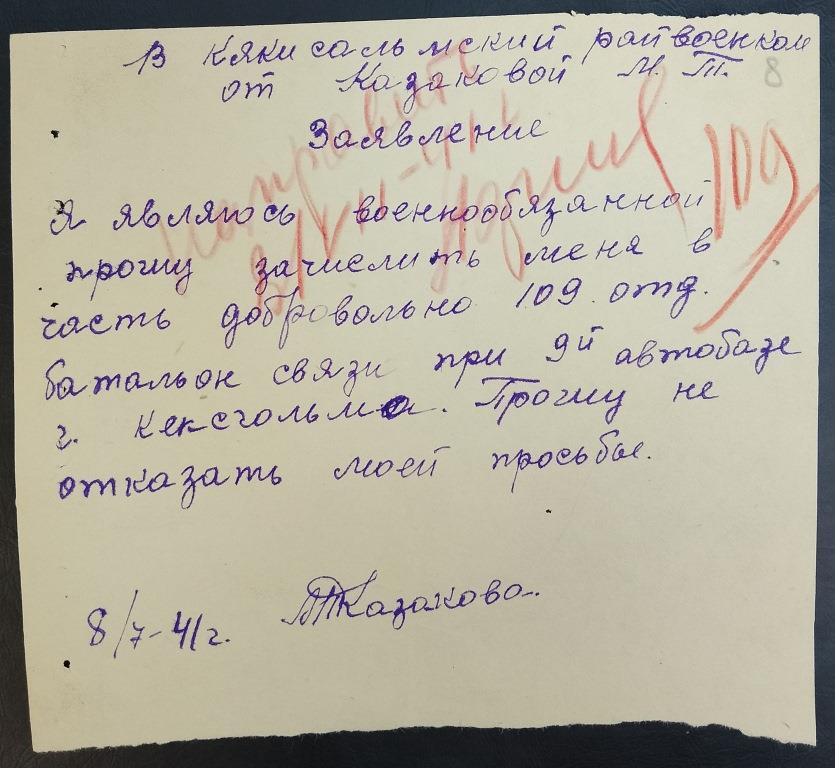 В Кякисальмский райвоенком
от Казаковой М. Т.
8
Заявление
Направить
109
Я являюсь военнообязанной
прошу зачислить меня в
часть добровольно 109 отд.
батальон связи при 9й автобазе
г. Кексгольма. Прошу не
отказать моей просьбы.
8/7-41г. МТКазакова.